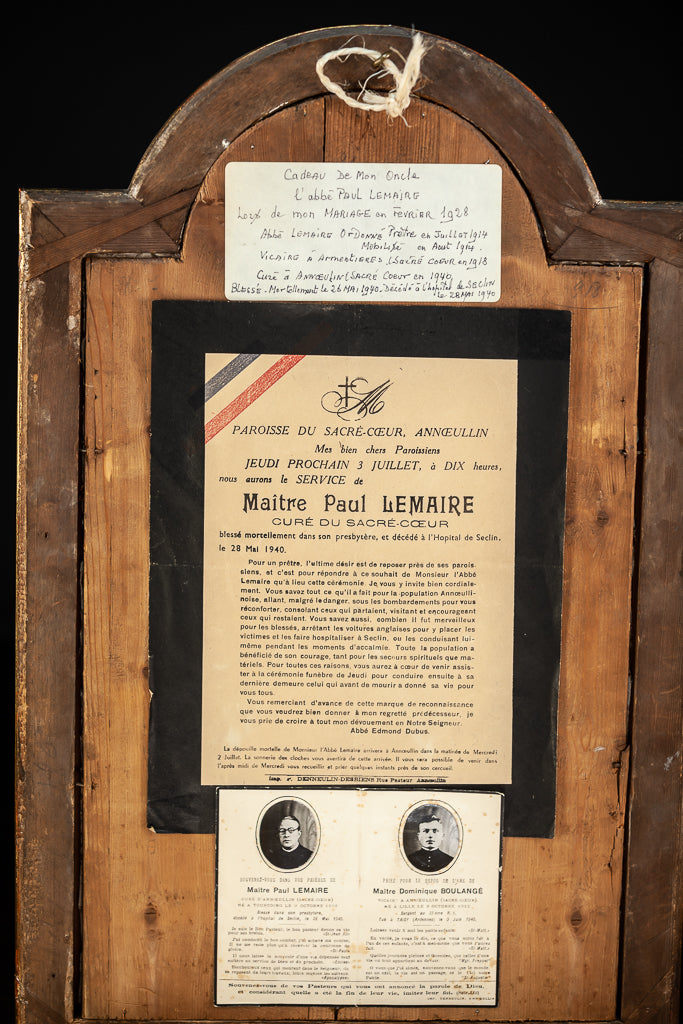 Cadeau De Mon Oncle
l'abbé Paul LEMAIRE
Lors de mon MARIAGE en Février 1928
Abbé LEMAIRE OrDonné Prêtre en Juillet 1914
Mobilisé en Aout 1914.
Vicaire à Armentières (Sacré Coeur en 1918
Curé à Annœulin (Sacré Coeur en 1940,
Blessé. Mortellement le 26 MAI 1940. Décédé à l'hopital de SECLIN
le 28 MAI 1940
PAROISSE DU SACRÉ-CŒUR, ANNŒULLIN
Mes bien chers Paroissiens
JEUDI PROCHAIN 3 JUILLET, à DIX heures,
nous aurons le SERVICE de
Maître Paul LEMAIRE
CURÉ DU SACRÉ-CŒUR
blessé mortellement dans son presbytère, et décédé à l'Hopital de Seclin,
le 28 Mai 1940.
Pour un prêtre, l'ultime désir est de reposer près de ses parois-
siens, et c'est pour répondre à ce souhait de Monsieur l'Abbé
Lemaire qu'à lieu cette cérémonie. Je vous y invite bien cordiale-
ment. Vous savez tout ce qu'il a fait pour la population Annœulli-
noise, allant, malgré le danger, sous les bombardements pour vous
réconforter, consolant ceux qui partaient, visitant et encourageant
ceux qui restaient. Vous savez aussi, combien il fut merveilleux
pour les blessés, arrêtant les voitures anglaises pour y placer les
victimes et les faire hospitaliser à Seclin, ou les conduisant lui-
même pendant les moments d'accalmie. Toute la population a
bénéficié de son courage, tant pour les secours spirituels que ma-
tériels. Pour toutes ces raisons, vous aurez à cœur de venir assis-
ter à la cérémonie funèbre de Jeudi pour conduire ensuite à sa
dernière demeure celui qui avant de mourir a donné sa vie pour
vous tous.
Vous remerciant d'avance de cette marque de reconnaissance
que vous voudrez bien donner à mon regretté prédécesseur, je
vous prie de croire à tout mon dévouement en Notre Seigneur.
Abbé Edmond Dubus.
La dépouille mortelle de Monsieur l'Abbé Lemaire arrivera à Annœullin dans la matinée de Mercredi
2 Juillet. La sonnerie des cloches vous avertira de cette arrivée. Il vous sera possible de venir dans
l'après midi de Mercredi vous recueillir et prier quelques instants près de son cercueil.
Imp. DENNEULIN-DESRIENS Rue Pasteur Annœullin
SOUVENEZ-VOUS DANS VOS PRIÈRES DE
Maître Paul LEMAIRE
CURÉ D'ANNŒULLIN (SACRÉ-CŒUR)
Blessé dans son presbytère,
décédé à l'hopital de Seclin, le 28 Mai 1940.
PRIEZ POUR LE REPOS DE L'AME DE
Maître Dominique BOULANGÉ
VICAIRE A ANNŒULLIN (SACRÉ-CŒUR)
Souvenez-vous de vos Pasteurs qui vous ont annoncé la parole de Dieu,
et considérant quelle a été la fin de leur vie, imitez leur foi.
IMP. DENNEULIN, ANNŒULLIN